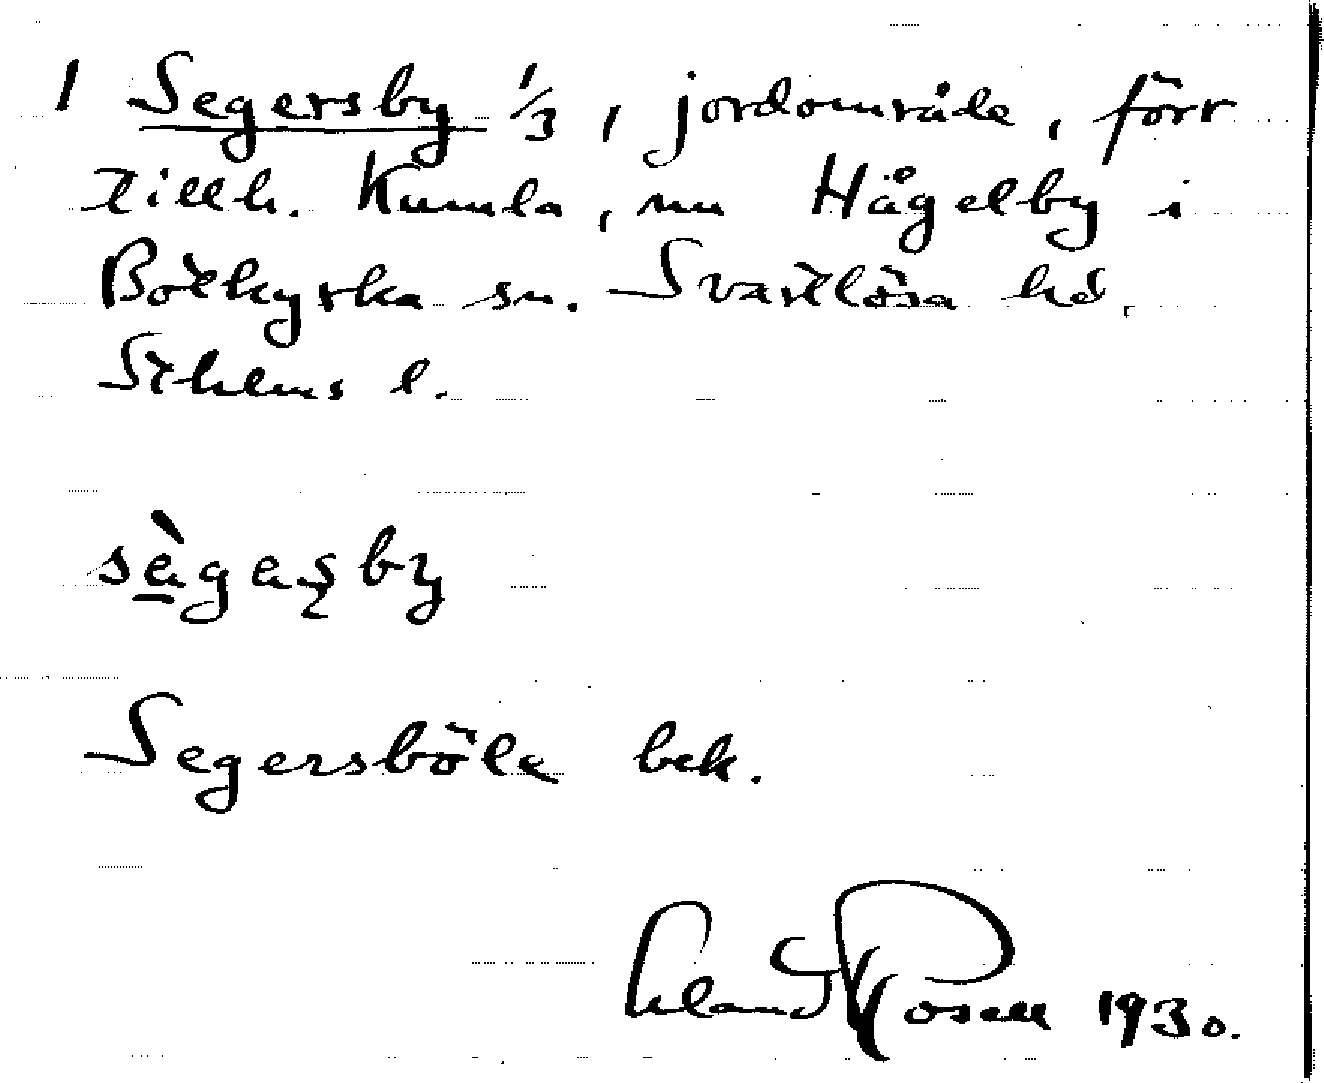 1 Segersby 1/3, jordområde, förr
tillh. Kumla, nu Hågelby i
Botkyrka sn. Svartlösa hd.
Sthlms l.
sègaṣby
Segersböle bek.
Erland Rosell 1930.